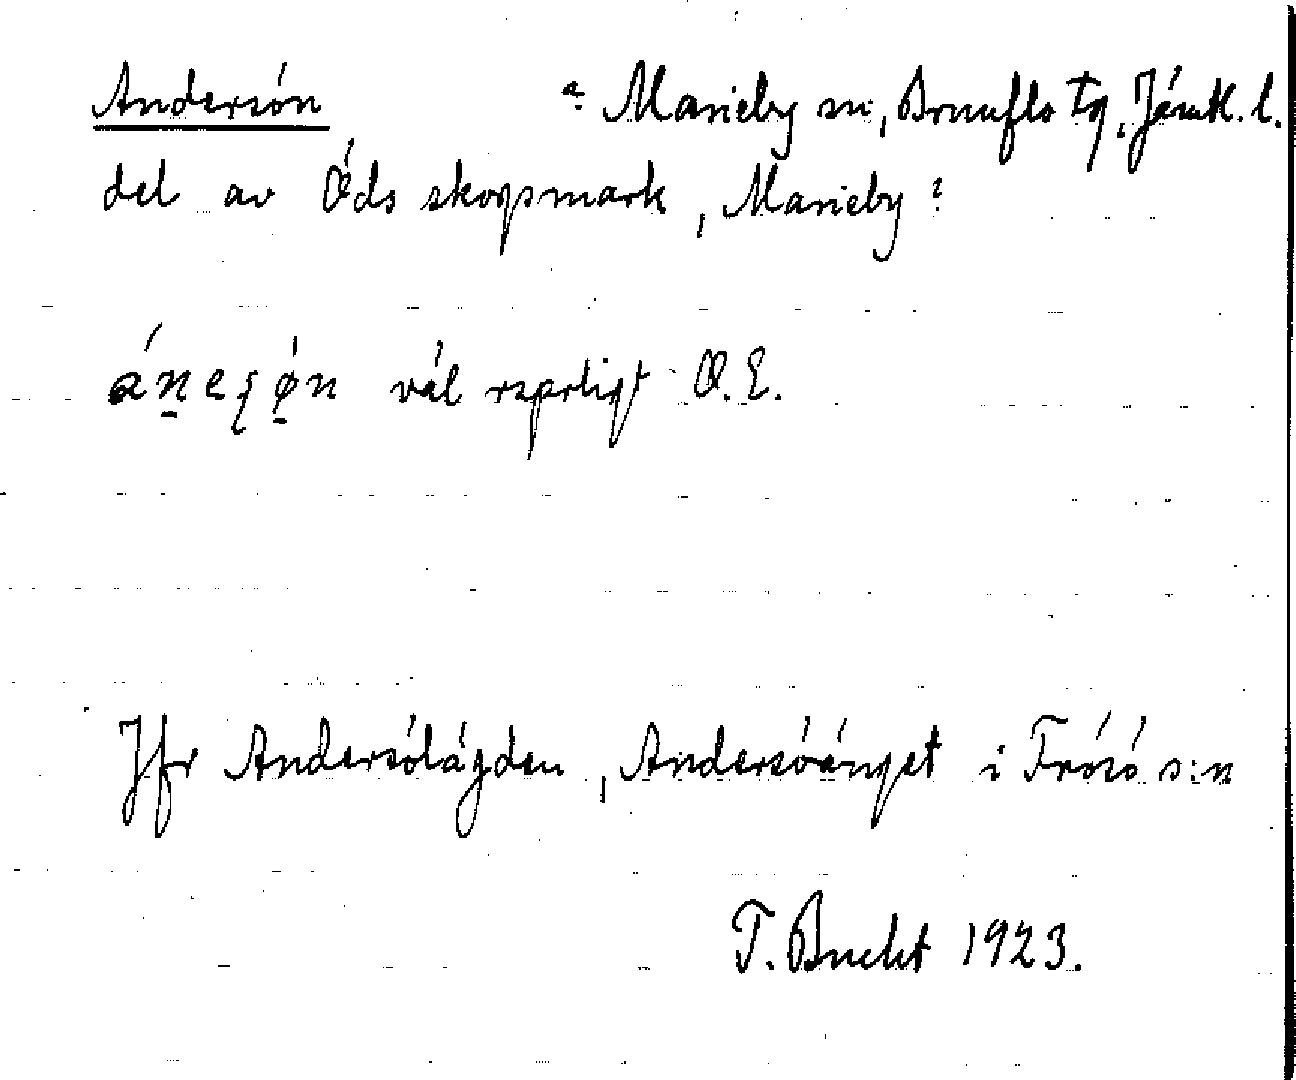 Andersön a: Marieby sn, Brunflo tg, Jämtl. l.
del av Öds skogsmark, Marieby?
väl reguljgt O.E.
Jfr Andersölägden, Andersöänget i Frösö s:n
T. Bucht 1923.